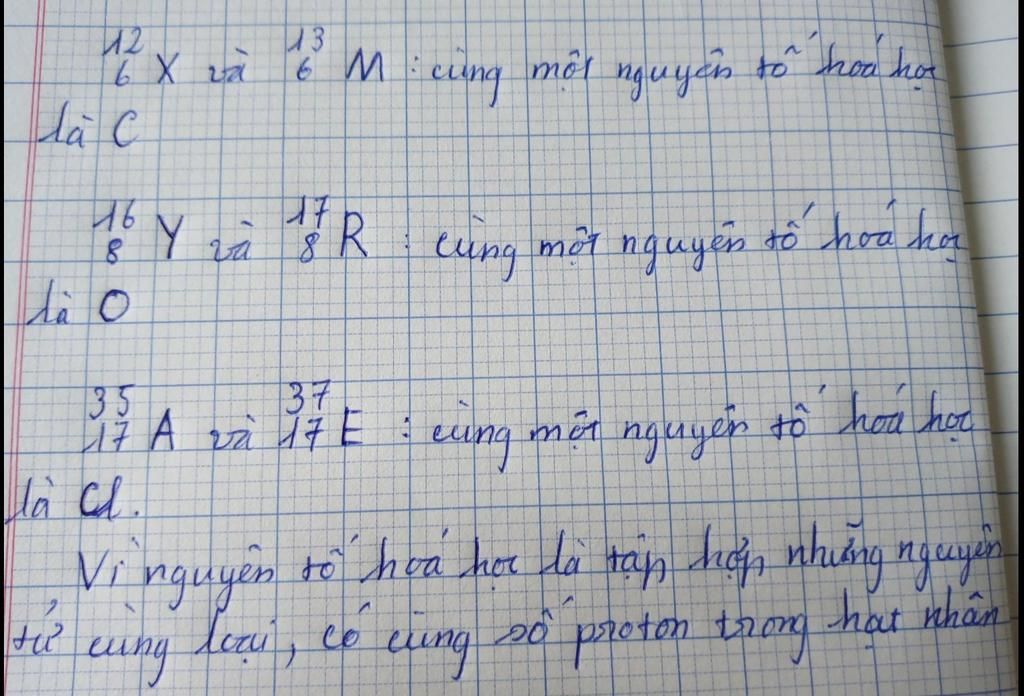 ¹²₆X và ¹³₆M : cùng một nguyên tố hoá học
là C
¹⁶₈Y và ¹⁷₈R : cùng một nguyên tố hoá học
là O
³⁵₁₇A và ³⁷₁₇E : cùng một nguyên tố hoá học
là Cl.
Vì nguyên tố hoá học là tập hợp những nguyên
tử cùng loại, có cùng số proton trong hạt nhân